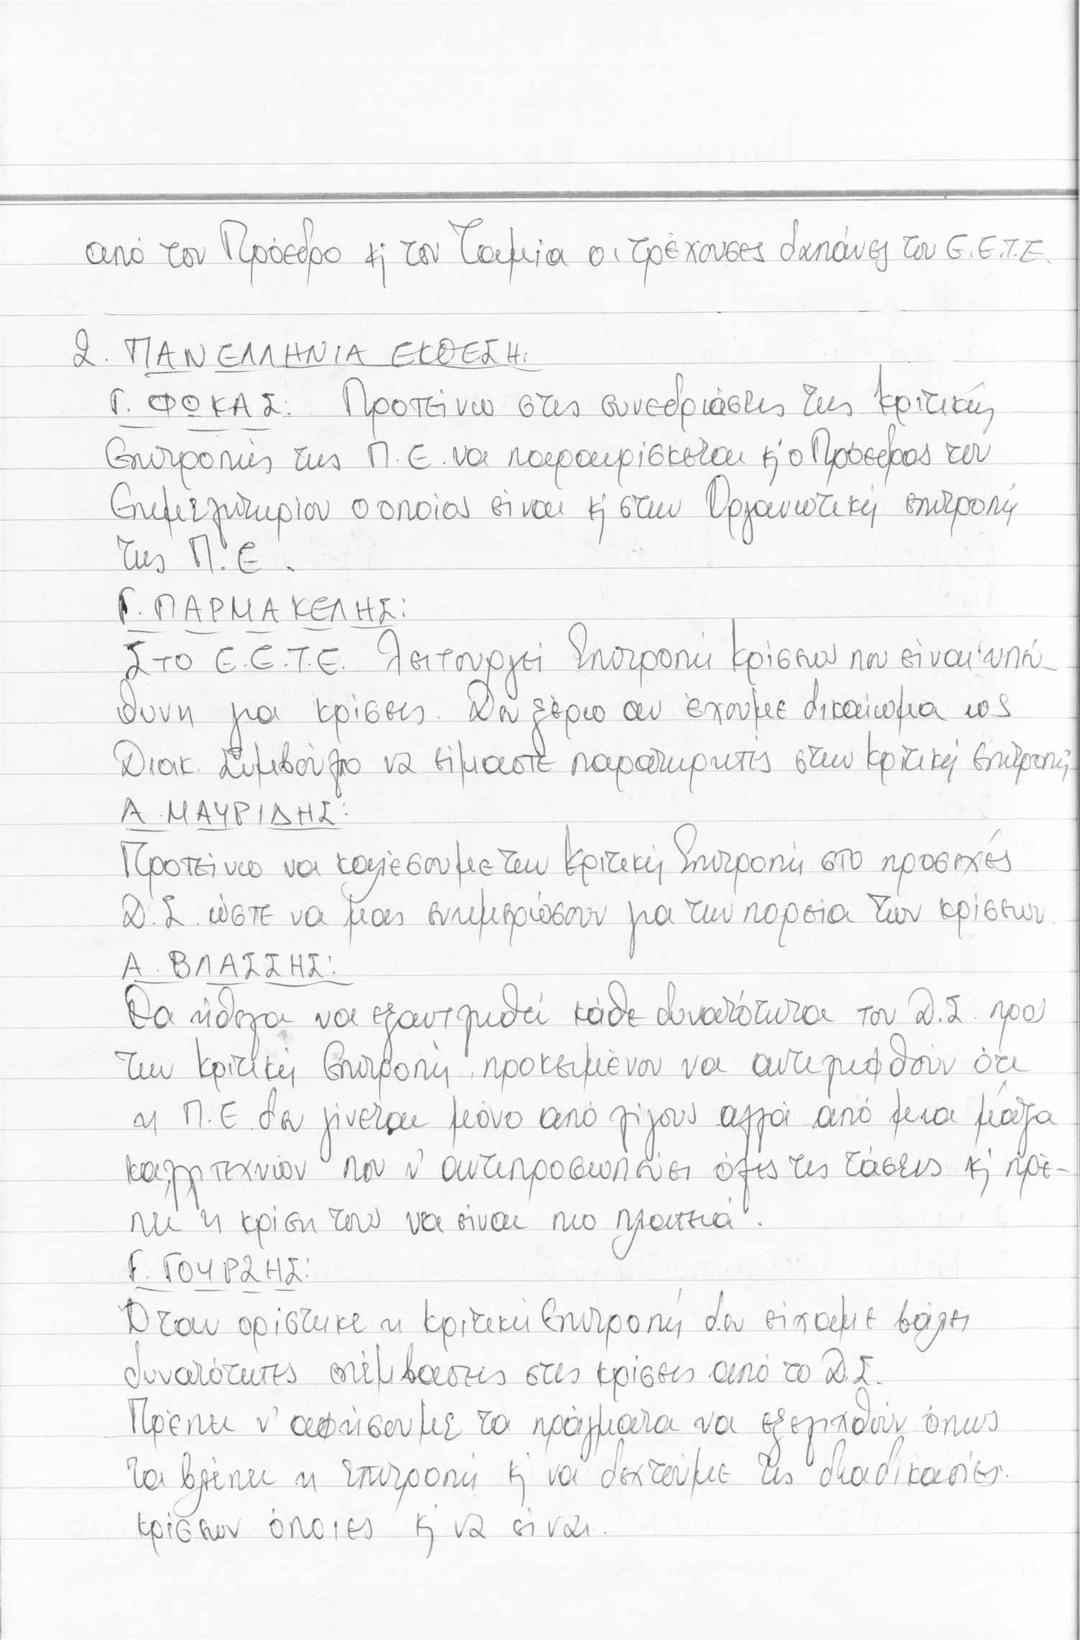 από τον Πρόεδρο κ' τον Ταμία οι τρέχουσες δαπάνες του Ε.Ε.Τ.Ε.
2. ΠΑΝΕΛΛΗΝΙΑ ΕΚΘΕΣΗ:
Γ. ΦΩΚΑΣ: Προτείνω στις συνεδριάσεις της κριτικής
Επιτροπής της Π.Ε. να παρευρίσκεται κ' ο Πρόεδρος του
Επιμελητηρίου ο οποίος είναι κ' στην Οργανωτική επιτροπή
της Π.Ε.
Γ. ΠΑΡΜΑΚΕΛΗΣ:
Στο Ε.Ε.Τ.Ε. λειτουργεί Επιτροπή Κρίσεων που είναι υπεύ-
θυνη για κρίσεις. Δεν ξέρω αν έχουμε δικαίωμα ως
Διοικ. Συμβούλιο να είμαστε παρατηρητές στην κριτική επιτροπή
Α. ΜΑΥΡΙΔΗΣ:
Προτείνω να καλέσουμε την Κριτική Επιτροπή στο προσεχές
Δ.Σ. ώστε να μας ενημερώσουν για την πορεία των κρίσεων.
Α. ΒΛΑΣΣΗΣ:
Θα ήθελα να εξαντληθεί κάθε δυνατότητα του Δ.Σ. προς
την κριτική Επιτροπή, προκειμένου να αντιληφθούν ότι
η Π.Ε. δεν γίνεται μόνο από λίγους αλλά από μια μάζα
καλλιτεχνών που ν' αντιπροσωπεύει όλες τις τάσεις κ' πρέ-
πει η κρίση τους να είναι πιο πλατειά.
Γ. ΓΟΥΡΖΗΣ:
Όταν ορίστηκε η κριτική Επιτροπή δεν είχαμε βάλει
δυνατότητες επέμβασης στις κρίσεις από το Δ.Σ.
Πρέπει ν' αφήσουμε τα πράγματα να εξελιχθούν όπως
τα βλέπει η επιτροπή κ' να δεχτούμε τις διαδικασίες
κρίσεων όποιες κ' να είναι.